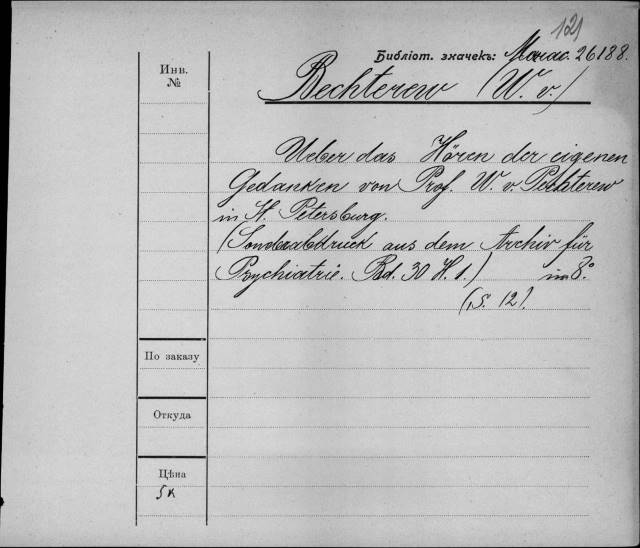 121
Библіот. значекъ: 26188.
Инв.
№
Bechterew (W. v.)
Ueber das Hören der eigenen
Gedanken von Prof. W. v. Bechterew
in St. Petersburg.
(Sonderabdruck aus dem Archiv für
Psychiatrie. Bd. 30 H. 1.) in 8.°
(S. 12).
По заказу
Откуда
Цѣна
5к